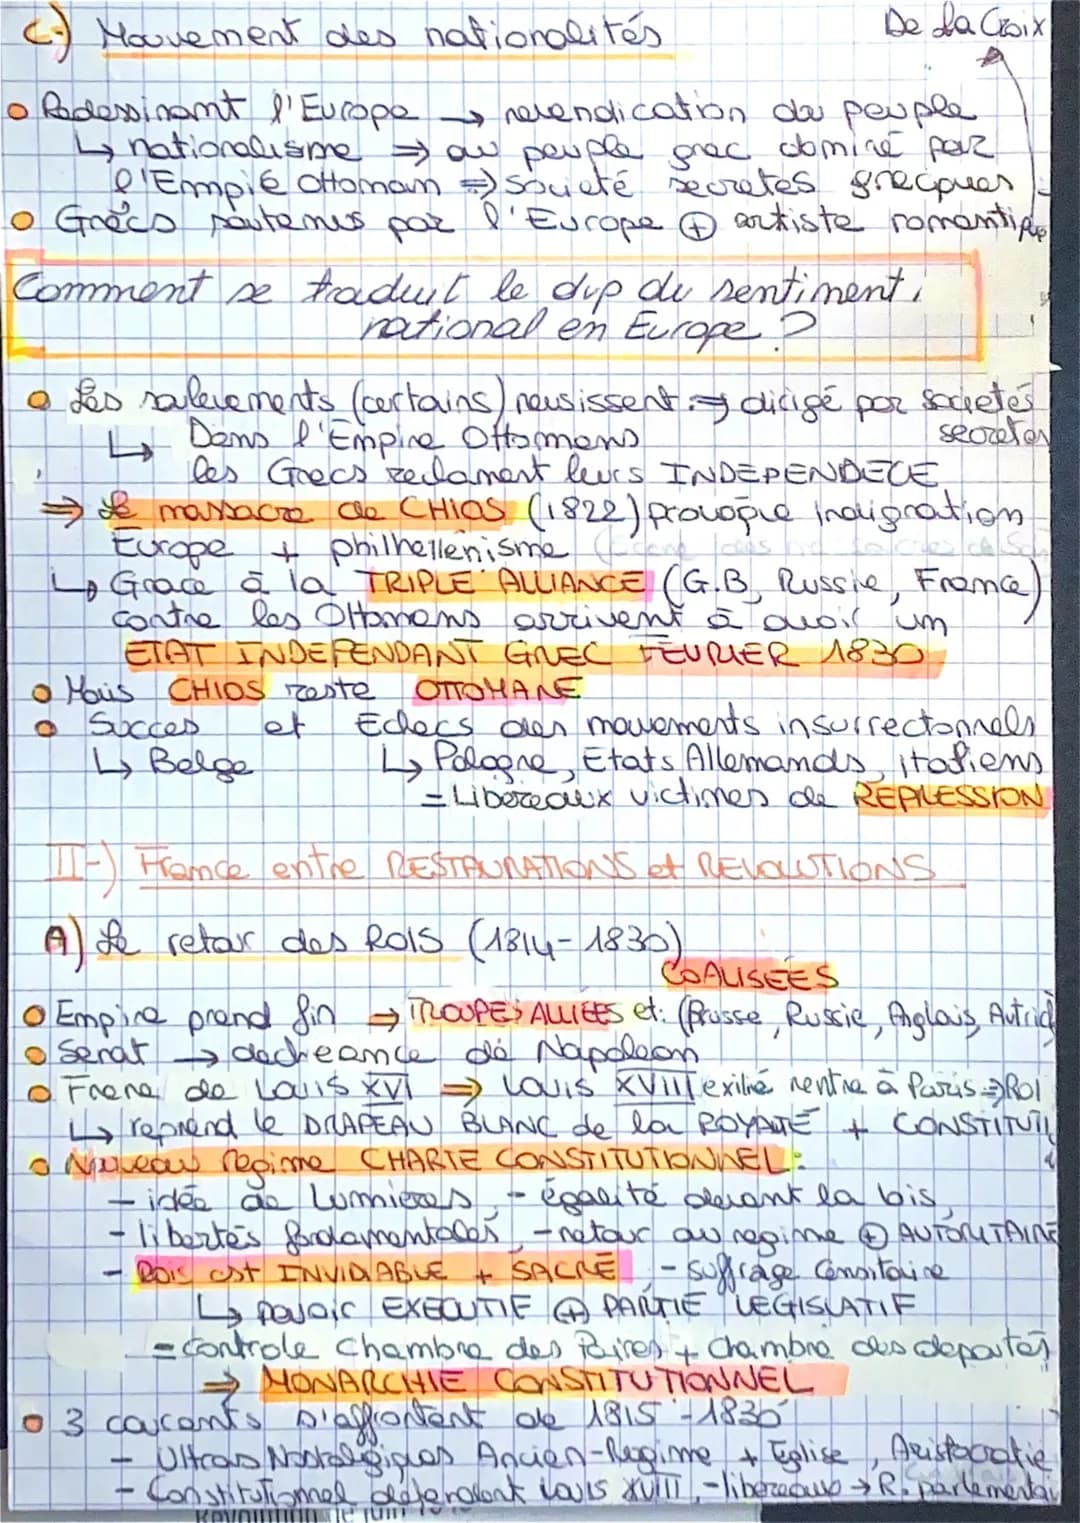 C-) Mouvement des nationalités
De La Croix
Redessinant l'Europe → revendication du peuple
↳ nationalisme ⇒ au peuple grec dominé par
l'Empie Ottoman ⇒ societé secretes grecques
Grecs soutenus par l'Europe ⊕ artiste romantique
Comment se traduit le dvp du sentiment
national en Europe ?
Les soulevements (certains) reusissent ⇒ dirigé par societés
secretes
↳ Dans l'Empire Ottomans
les Grecs reclament leurs INDEPENDECE
⇒ Le massacre de CHIOS (1822) provoque indignation
Europe + philhellenisme
↳ Grace à la TRIPLE ALLIANCE (G.B, Russie, France)
contre les Ottomans arrivent à avoir un
ETAT INDEPENDANT GREC FEVRIER 1830
Mais CHIOS reste OTTOMANE
Succes et Echecs des mouvements insurrectonnels
↳ Belge ↳ Pologne, Etats Allemands, italiens
= Libereaux victimes de REPRESSION
II-) France entre RESTAURATIONS et REVOLUTIONS
A) Le retour des ROIS (1814-1830)
COALISEES
Empire prend fin ⇒ TROUPES ALLIEES et: (Prusse, Russie, Anglais, Autric
Senat → decheance de Napoleon
Frere de Louis XVI ⇒ Louis XVIII exilié rentre à Paris ⇒ ROI
↳ reprend le DRAPEAU BLANC de la ROYAUTE + CONSTITUTI
Nouveau regime CHARTE CONSTITUTIONNEL:
- idée de Lumieres, - égalité devant la lois,
- libertés fondamentales, - retour au regime ⊕ AUTORITAIRE
- ROIS est INVIOLABLE + SACRE, - suffrage censitaire
↳ pouvoir EXECUTIF ⊕ PARTIE LEGISLATIF
= controle Chambre des Paires + Chambre des deputés
⇒ MONARCHIE CONSTITUTIONNEL
3 courants s'affrontent de 1815 - 1830
- Ultras Nostalgiques Ancien-Regime + Eglise, Aristocratie
- Constitutionnel defendent Louis XVIII, - libereaux → R. parlementai